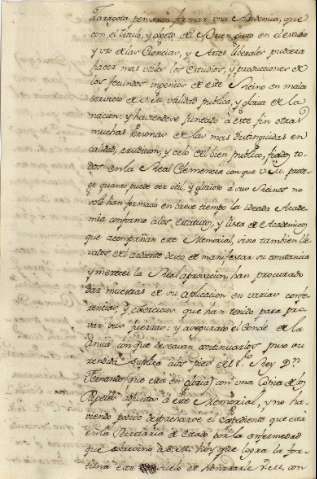 Zaragoza pensaria formar una Academia, que
con el titulo, y objeto del Buen gusto en el estudio
y uso de las Ciencias, y Artes liberales pudiera
hacer mas utiles los Estudios, y producciones de
los fecundos ingenios de este Reino en maior
servicio de S. M. utilidad publica, y gloria de la
nacion: y haviendose juntado a este fin otras
muchas Personas de las mas distinguidas en
calidad, erudicion, y celo del bien publico, fiados to-
dos en la Real Clemencia con que V. M. protege
quanto puede ser util, y glorioso a sus Reinos no
solo han formado en breve tiempo la ideada Acade-
mia conforme a los estatutos, y lista de Academicos
que acompañan este Memorial, sino tambien lle-
vados del ardiente deseo de manifestar su constancia
y merecer la Real aprovacion, han procurado
dar muestras de su aplicacion en varias confe-
rencias, y exercicios que han tenido para
y asegurado el Conde de la
con que desean continuarlos puso su
rendida suplica a los pies del Sr. Rey Dn.
Fernando, que está en gloria, con una Copia de los
este Memorial, y no ha-
viendo podido despacharse el expediente que está
en la Secretaria de Estado por la enfermedad
que sobrevino a S. M.; hoy que logra la for-
tuna este de